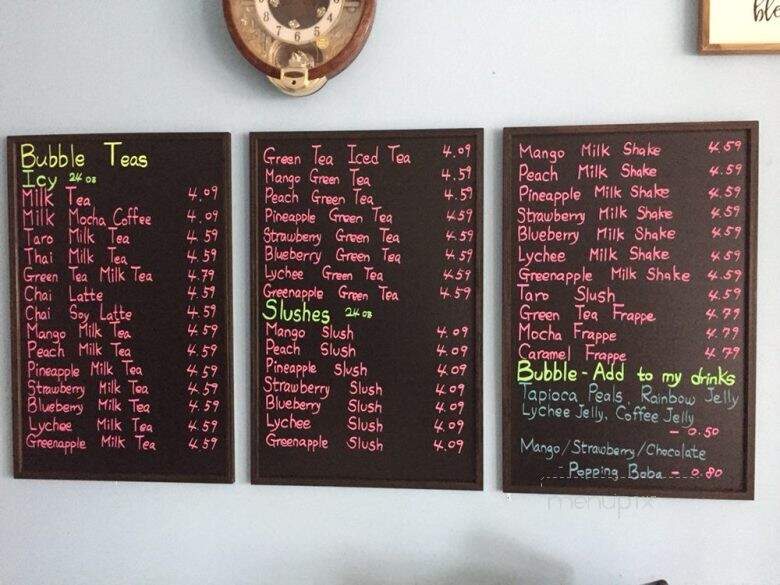 ble
8
7
6
5
4
Bubble Teas
Icy 24 oz
Milk Tea 4.09
Milk Mocha Coffee 4.09
Taro Milk Tea 4.59
Thai Milk Tea 4.59
Green Tea Milk Tea 4.79
Chai Latte 4.59
Chai Soy Latte 4.59
Mango Milk Tea 4.59
Peach Milk Tea 4.59
Pineapple Milk Tea 4.59
Strawberry Milk Tea 4.59
Blueberry Milk Tea 4.59
Lychee Milk Tea 4.59
Greenapple Milk Tea 4.59
Green Tea Iced Tea 4.09
Mango Green Tea 4.59
Peach Green Tea 4.59
Pineapple Green Tea 4.59
Strawberry Green Tea 4.59
Blueberry Green Tea 4.59
Lychee Green Tea 4.59
Greenapple Green Tea 4.59
Slushes 24 oz
Mango Slush 4.09
Peach Slush 4.09
Pineapple Slush 4.09
Strawberry Slush 4.09
Blueberry Slush 4.09
Lychee Slush 4.09
Greenapple Slush 4.09
Mango Milk Shake 4.59
Peach Milk Shake 4.59
Pineapple Milk Shake 4.59
Strawberry Milk Shake 4.59
Blueberry Milk Shake 4.59
Lychee Milk Shake 4.59
Greenapple Milk Shake 4.59
Taro Slush 4.59
Green Tea Frappe 4.79
Mocha Frappe 4.79
Caramel Frappe 4.79
Bubble - Add to my drinks
Tapioca Peals, Rainbow Jelly
Lychee Jelly, Coffee Jelly
- 0.50
Mango/Strawberry/Chocolate
- Popping Boba - 0.80
menupix